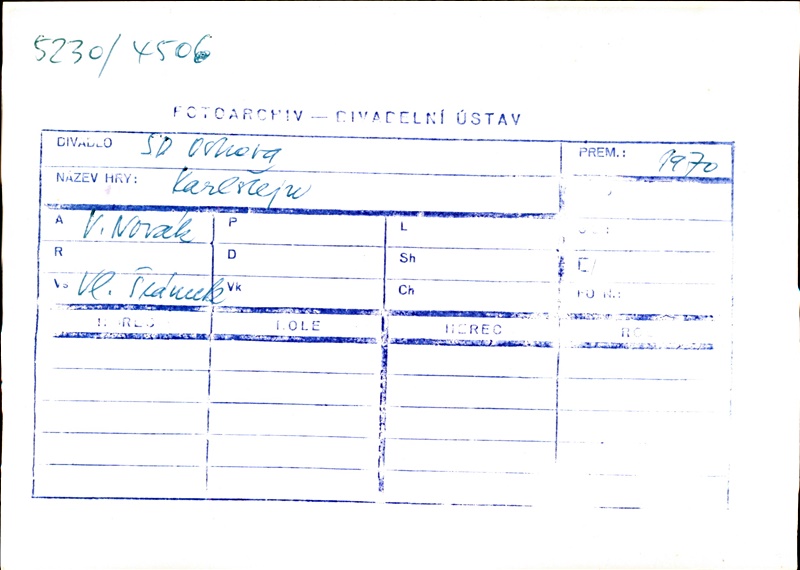 5230/4506
FOTOARCHIV — DIVADELNÍ ÚSTAV
DIVADLO SD Ostrava PREM.: 1970
NÁZEV HRY: Karlštejn
A V. Novák P L
R D Sh
Vs Vl. Šrámek Vk Ch
HEREC ROLE HEREC